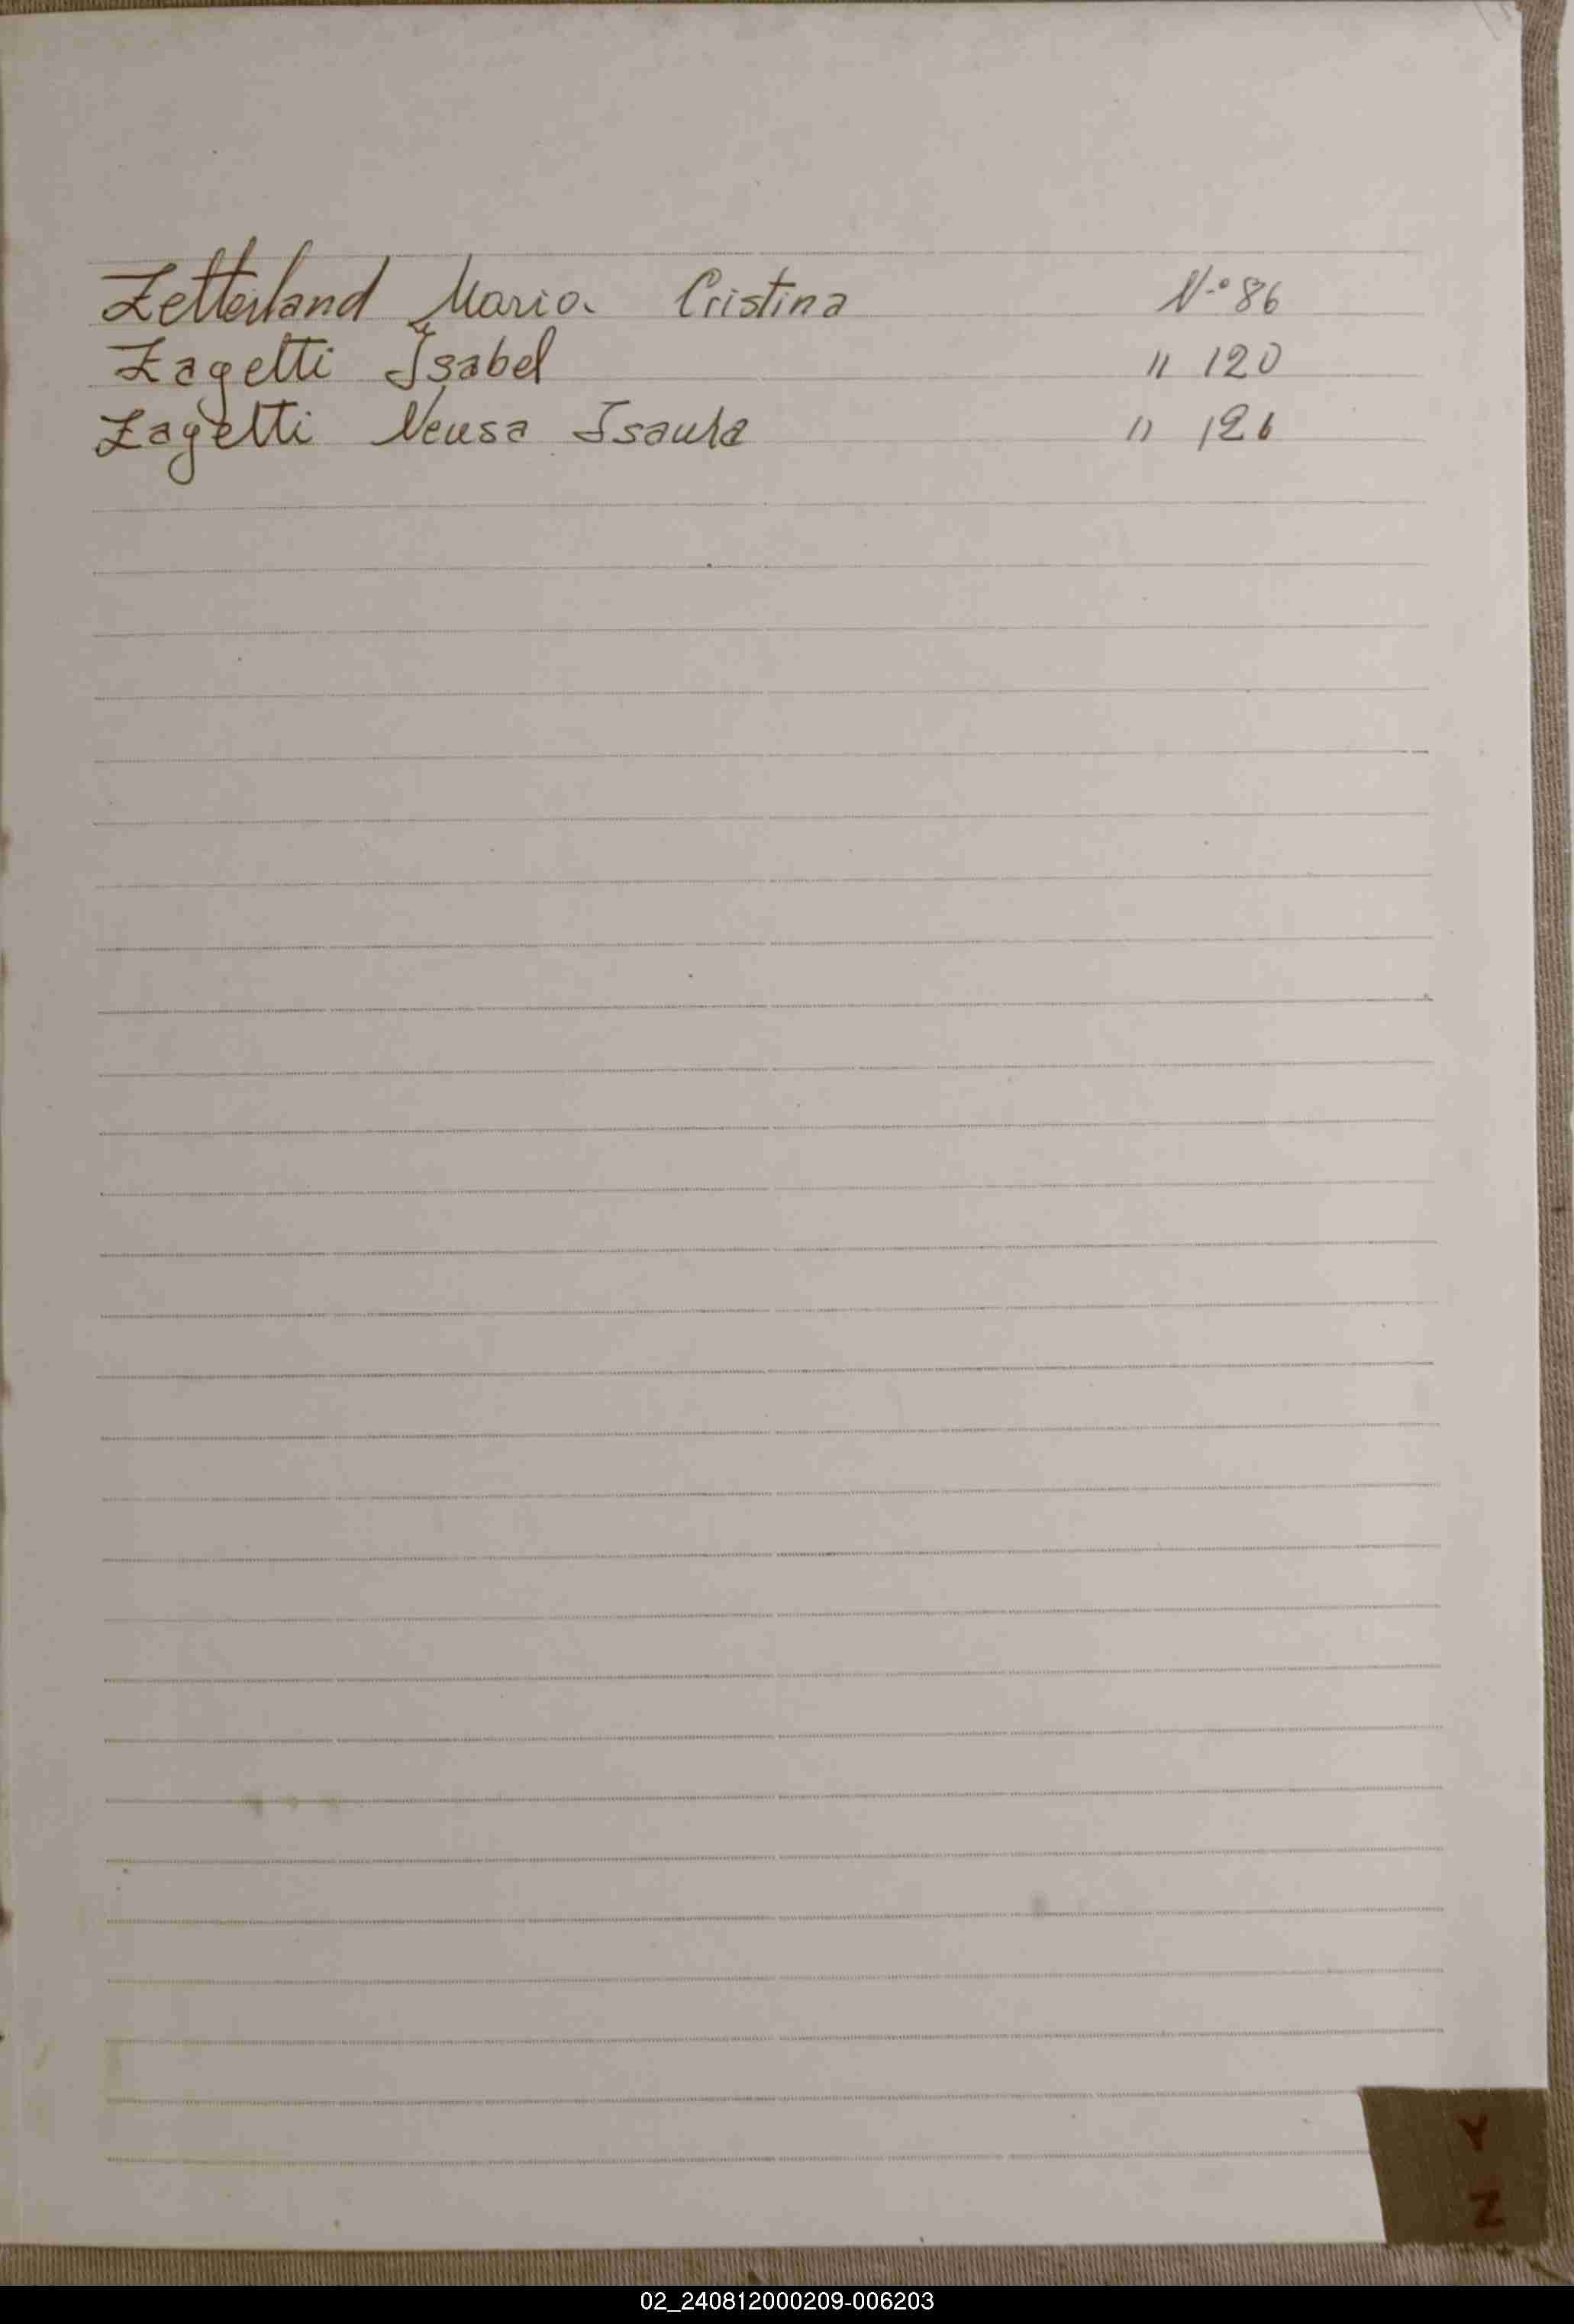 Zetterland Maria Cristina Nº 86
Zagetti Isabel " 120
Zagetti Neusa Isaura " 126
Y
Z
02_240812000209-006203